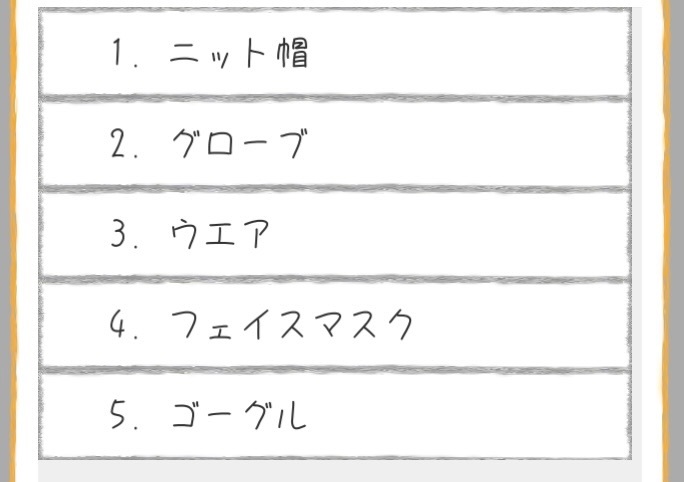 1. ニット帽
2. グローブ
3. ウエア
4. フェイスマスク
5. ゴーグル